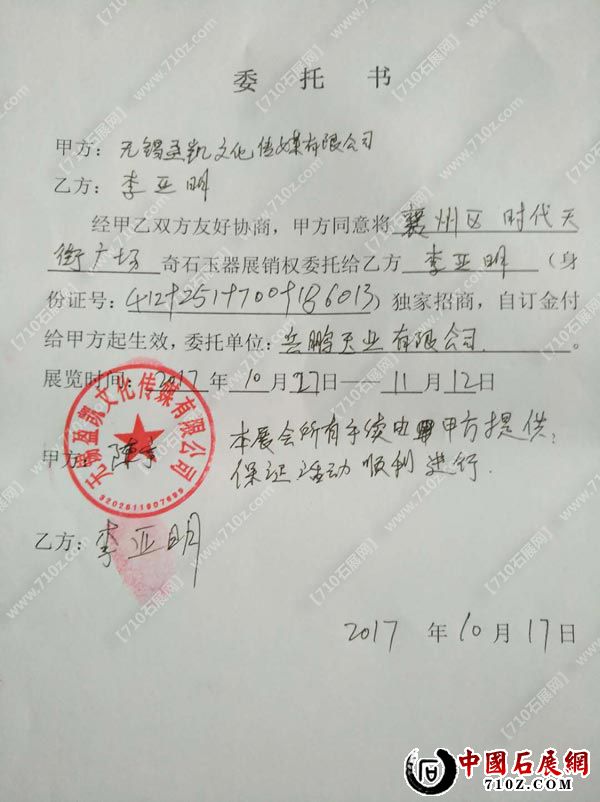 委托书
甲方：无锡盈凯文化传媒有限公司
乙方：李亚明
经甲乙双方友好协商，甲方同意将襄州区时代天
街广场奇石玉器展销权委托给乙方李亚明（身
份证号：）独家招商，自订金付
给甲方起生效，委托单位：岳鹏天业有限公司。
展览时间：2017年10月27日——11月12日
无锡盈凯文化传媒有限公司
甲方：陈
本展会所有手续由甲方提供，
保证活动顺利进行.
乙方：李亚明
2017年10月17日
【710石展网】
www.710z.com
中國石展網
www.710z.com